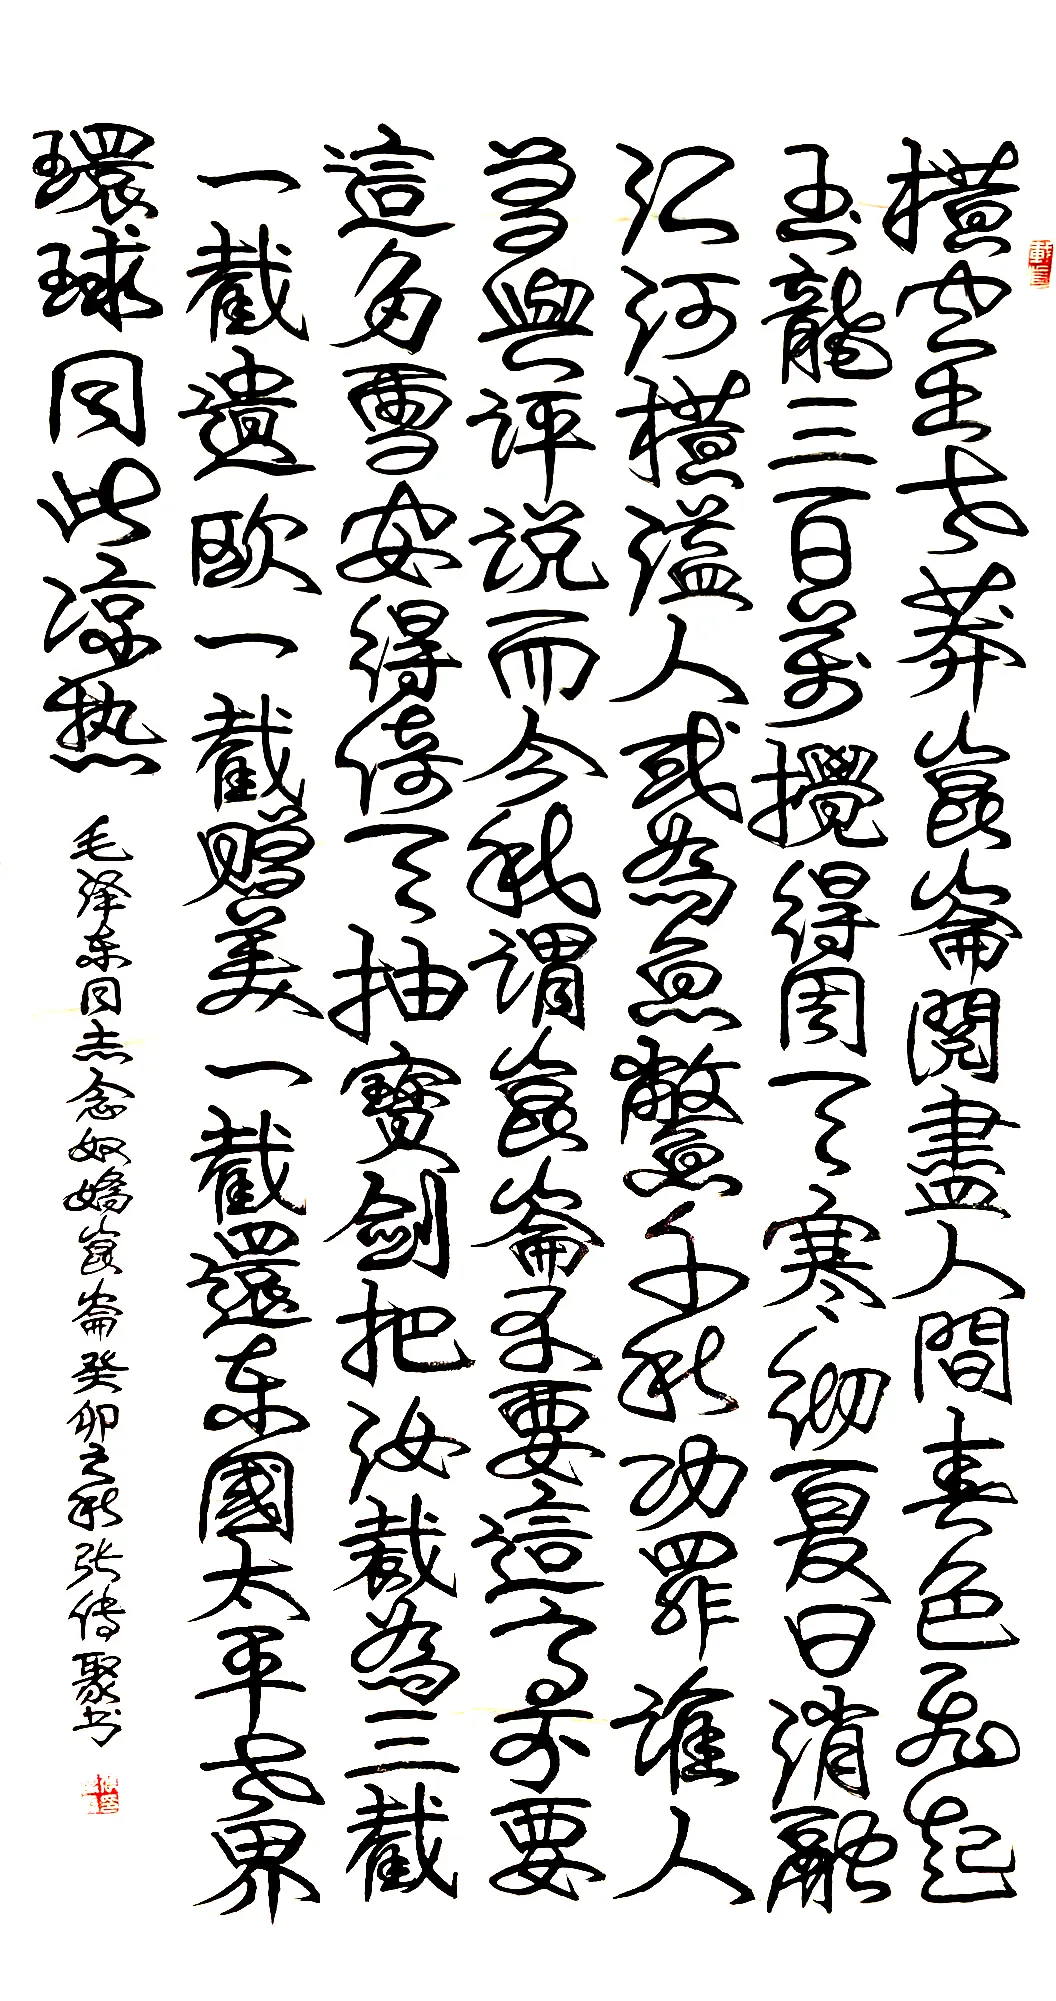 橫空出世莽崑崙閱盡人間春色飛起
玉龍三百萬攪得周天寒彻夏日消融
江河橫溢人或為魚鱉千秋功罪誰人
曾與評说而今我謂崑崙不要這高不要
這多雪安得倚天抽寶劍把汝裁為三截
一截遺欧一截贈美一截還东國太平世界
環球同此凉热
毛泽东同志念奴嬌崑崙癸卯之秋张传聚书